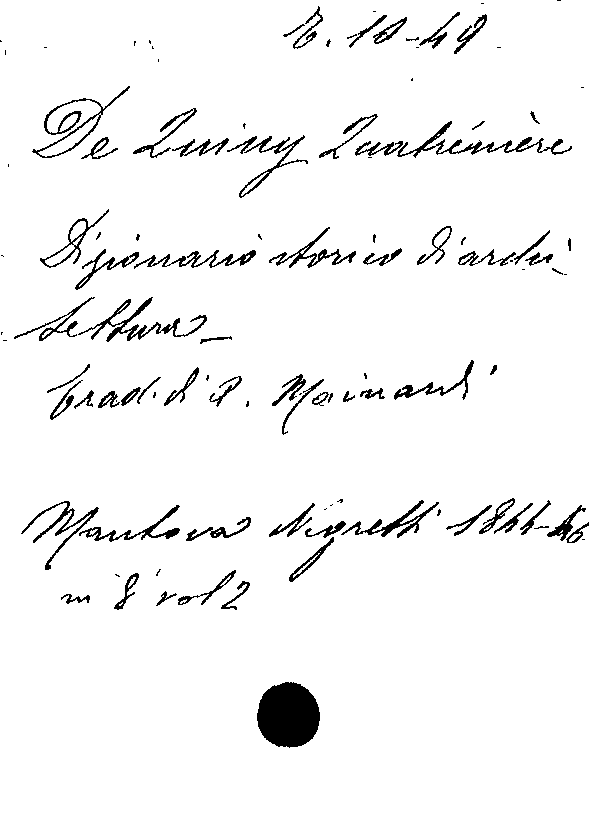 E. 10-49
De Quincy Quatrémère
Dizionario storico di archi-
tettura -
Trad. di A. Mainardi
Mantova Negretti 1844-46
in 8° vol 2